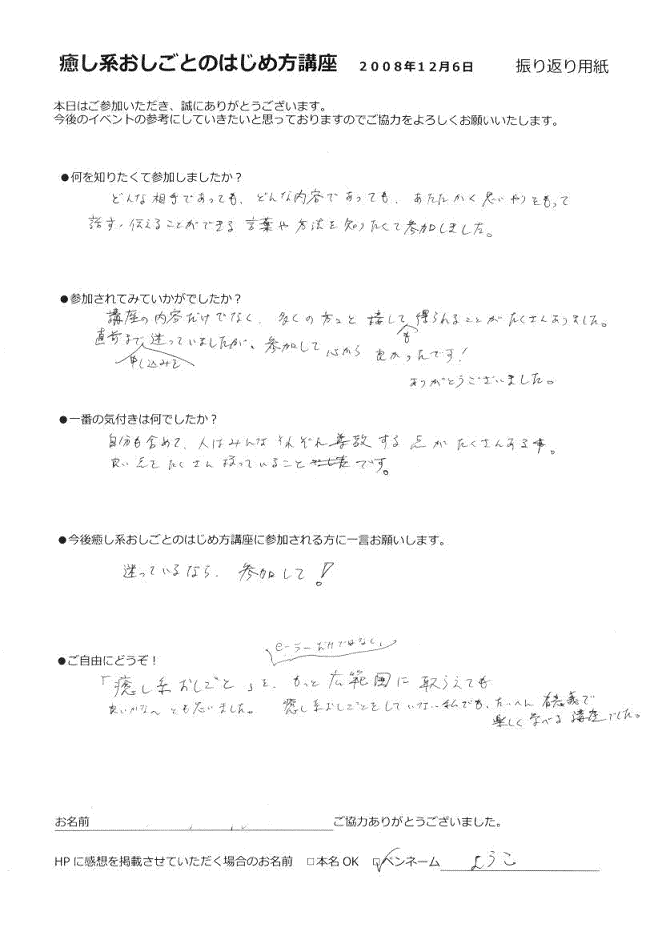 癒し系おしごとのはじめ方講座 2008年12月6日 振り返り用紙
本日はご参加いただき、誠にありがとうございます。
今後のイベントの参考にしていきたいと思っておりますのでご協力をよろしくお願いいたします。
●何を知りたくて参加しましたか？
どんな相手であっても、どんな内容であっても、あたたかく思いやりをもって
話す・伝えることができる言葉や方法を知りたくて参加しました。
●参加されてみていかがでしたか？
講座の内容だけでなく、多くの方々と接して得られることがたくさんありました。
も
直前まで迷っていましたが、参加して心から良かったです！
申し込みを
ありがとうございました。
●一番の気付きは何でしたか？
自分も含めて、人はみんなそれぞれ尊敬する点がたくさんある事。
良い点をたくさん持っていることです。
●今後癒し系おしごとのはじめ方講座に参加される方に一言お願いします。
迷っているなら、参加して！
●ご自由にどうぞ！
だけではなく、
「癒し系おしごと」を、もっと広範囲に取らえても
良いかなへとも思いました。癒し系おしごとをしていない私でも、たいへん有意義で
楽しく学べる講座でした。
お名前 ご協力ありがとうございました。
HPに感想を掲載させていただく場合のお名前 □本名OK ☑ペンネーム ようこ